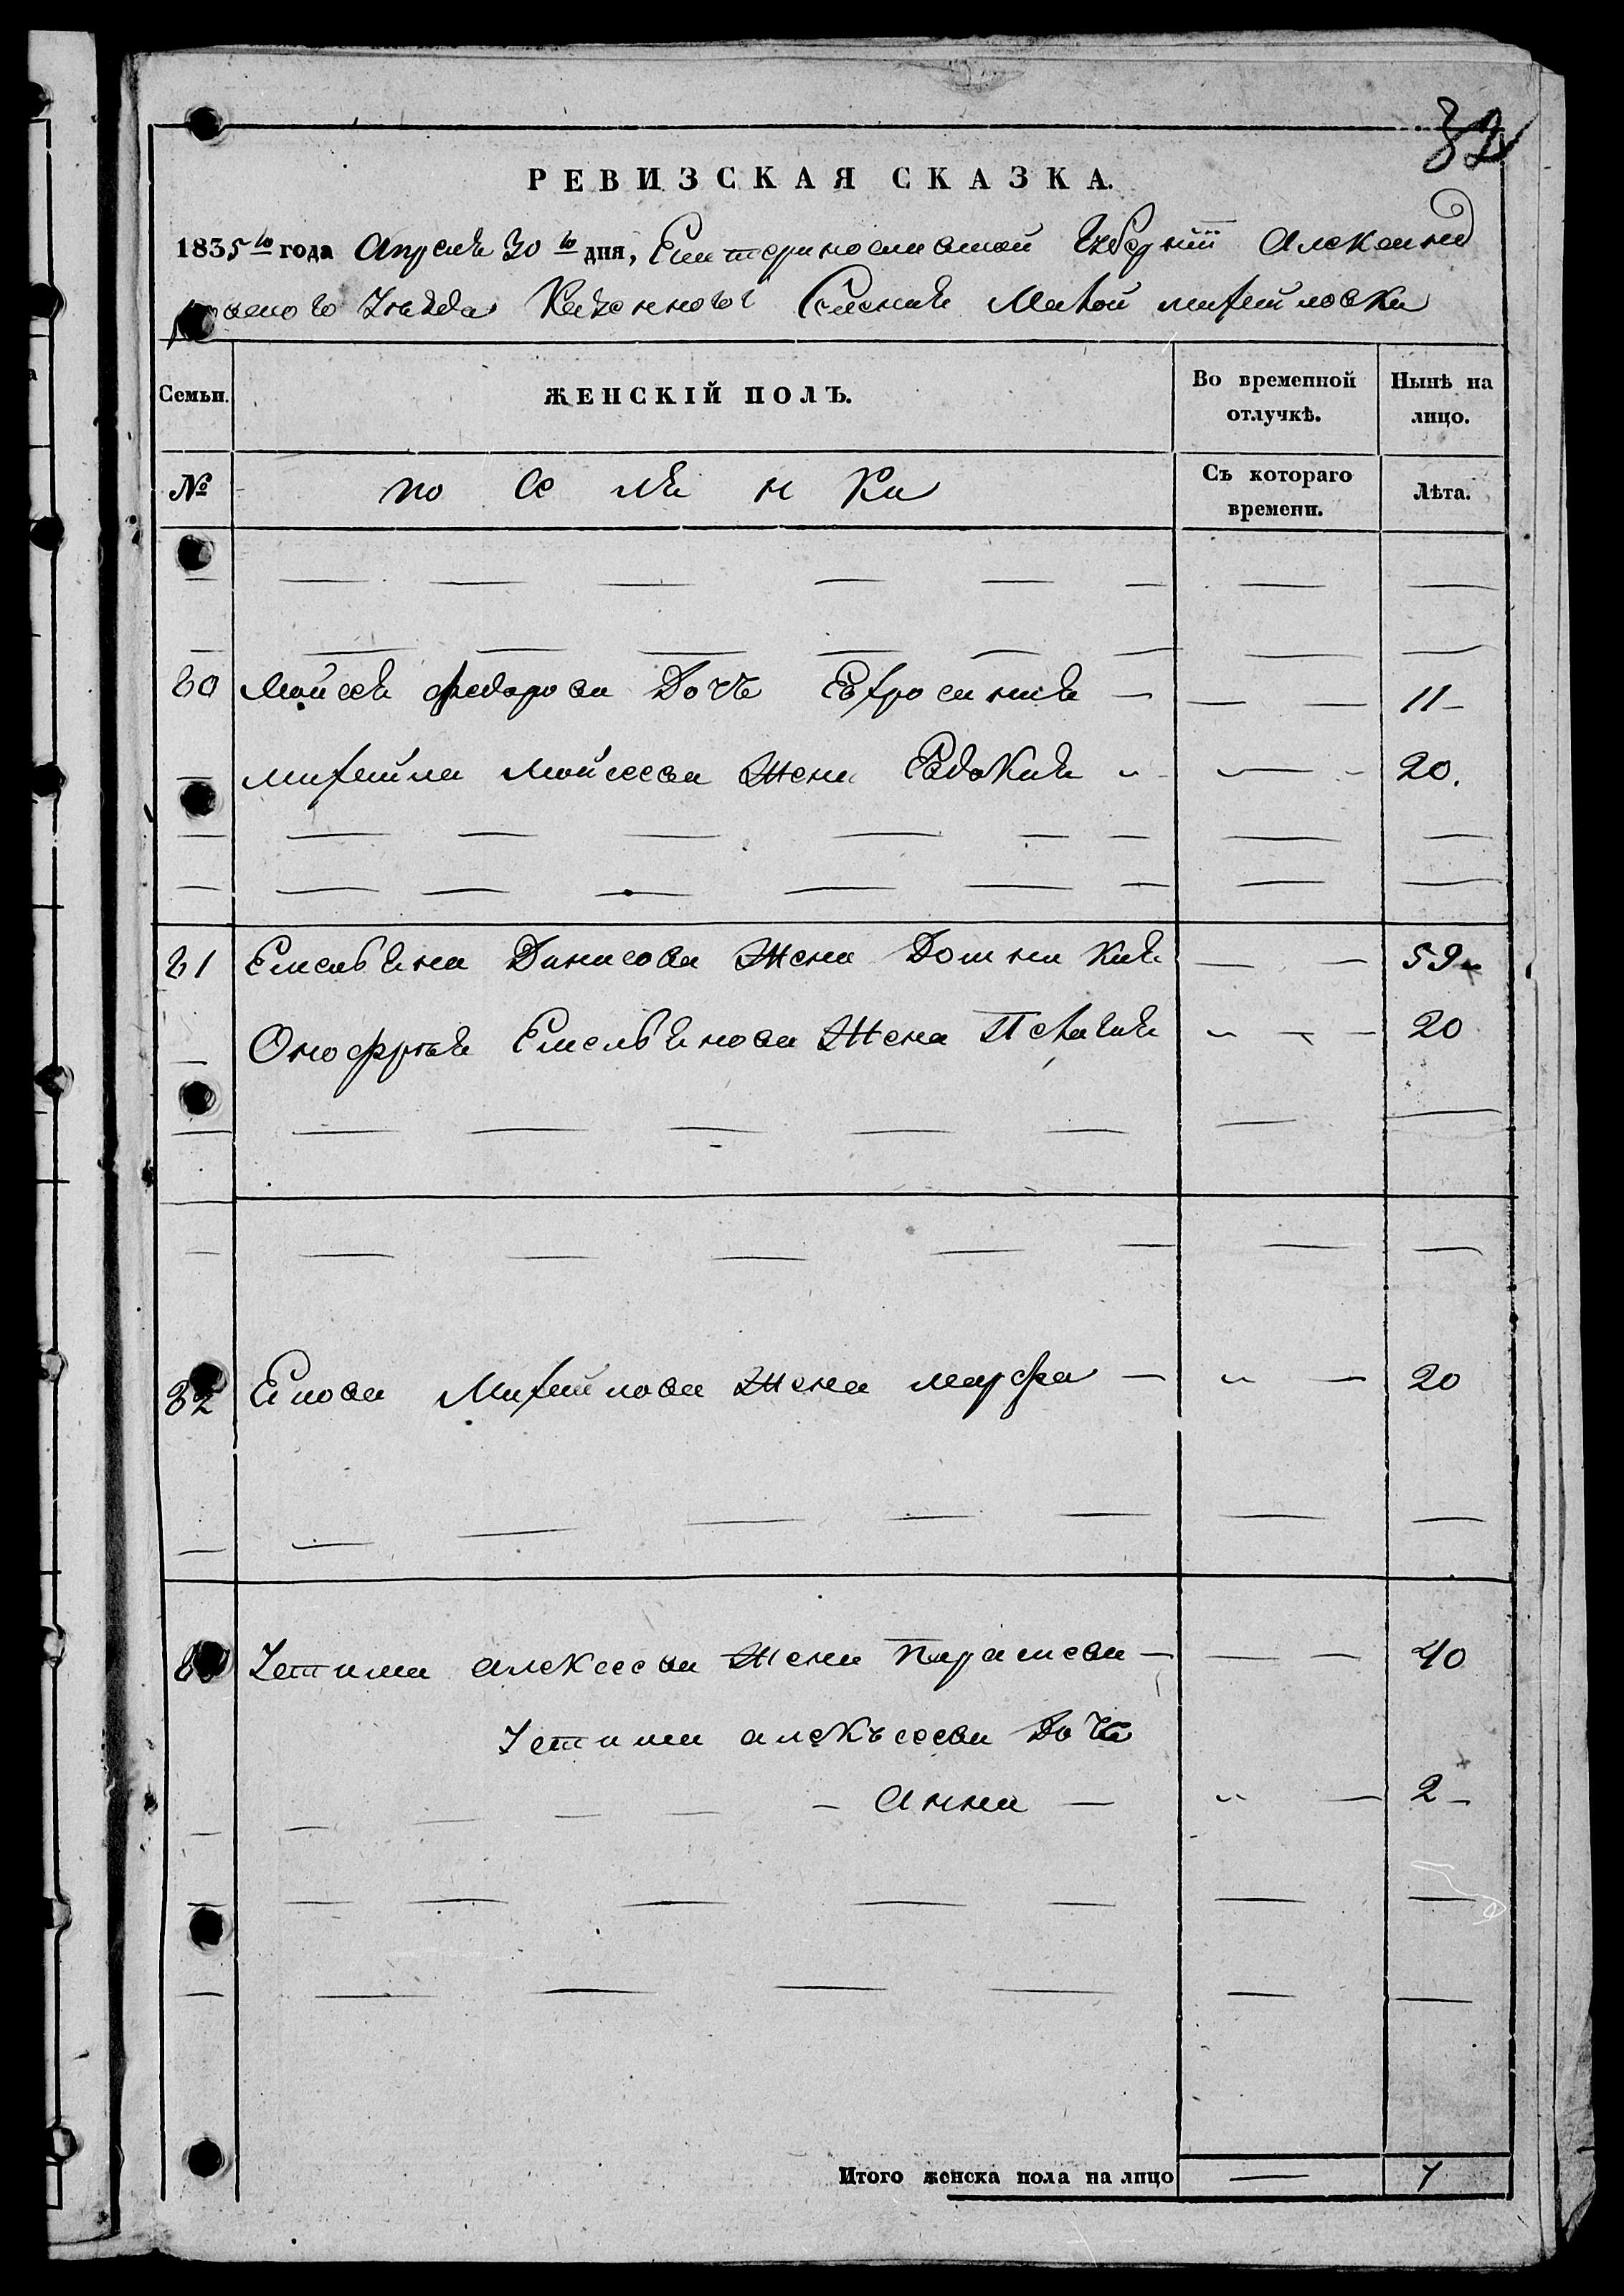 32
РЕВИЗСКАЯ СКАЗКА.
1835го года Апреля 30го дня, Екатеринославской Губерніи Александ
ровского Уезда Казенного Селения Малой Михайловки
Семьи. ЖЕНСКІЙ ПОЛЪ. Во временной отлучкѣ. Нынѣ на лицо.
№ поселянки Съ котораго времени. Лѣта.
80 Мойсея Федорова Дочь Ефросиния — 11
Михайла Мойсеева Жена Евдокия 20.
81 Емельяна Данилова Жена Домникия 59
Онофрія Емельянова Жена Пелагия 20
82 Михайлова Жена марфа — 20
Устима алексеева Жена Парасева — 40
Устима алексеева Дочь
— Анна — 2
Итого женска пола на лицо — 7